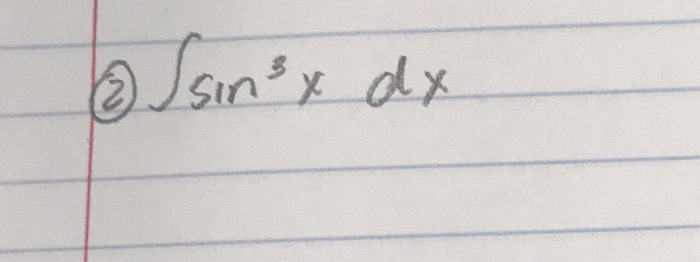 ② ∫sin³x dx